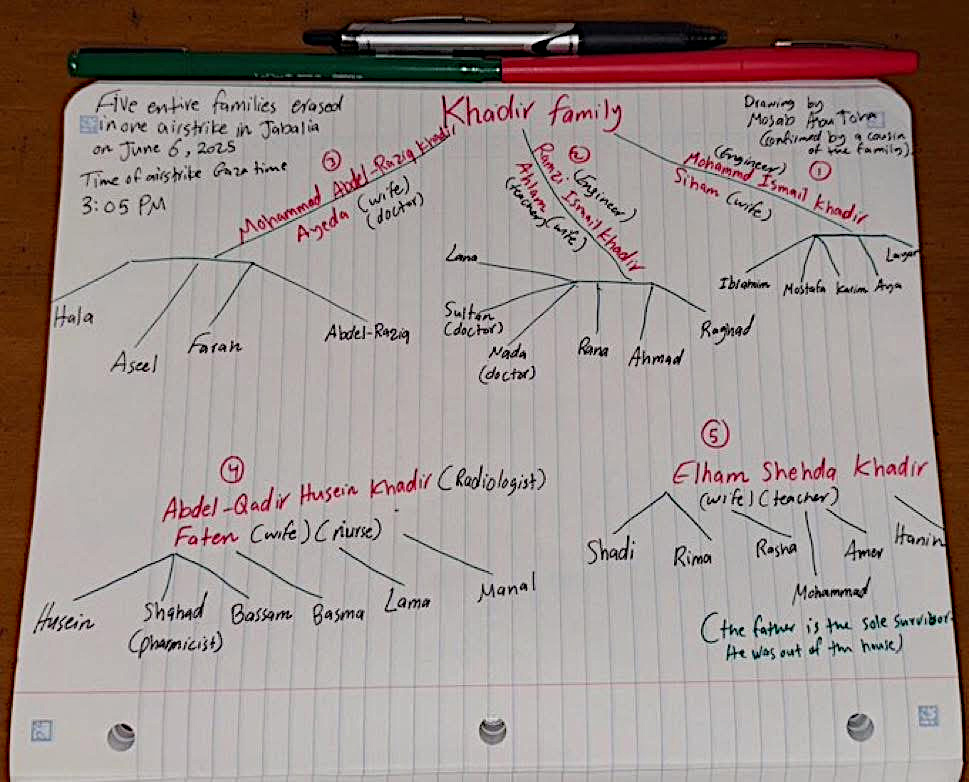 Five entire families erased
in one airstrike in Jabalia
on June 6, 2025
Time of airstrike Gaza time
3:05 PM
Khadir family
Drawing by
Mosab Abu Toha
(confirmed by a cousin
of the family)
①
(Engineer)
Mohammd Ismail Khadir
Siham (wife)
Ibrahim
Mostafa
Karim
Aya
②
(Engineer)
Ramzi Ismail Khadir
Ahlam (wife)
(teacher)
Lana
Sultan
(doctor)
Nada
(doctor)
Rana
Ahmad
Raghad
③
Mohammad Abdel-Raziq Khadir
Ayeda (wife)
(doctor)
Hala
Aseel
Farah
Abdel-Raziq
④
Abdel-Qadir Husein Khadir (Radiologist)
Faten (wife) (nurse)
Husein
Shahad
(pharmicist)
Bassam
Basma
Lama
Manal
⑤
Elham Shehda Khadir
(wife) (teacher)
Shadi
Rima
Rasha
Mohammad
Amer
Hanin
(the father is the sole survivor.
He was out of the house)